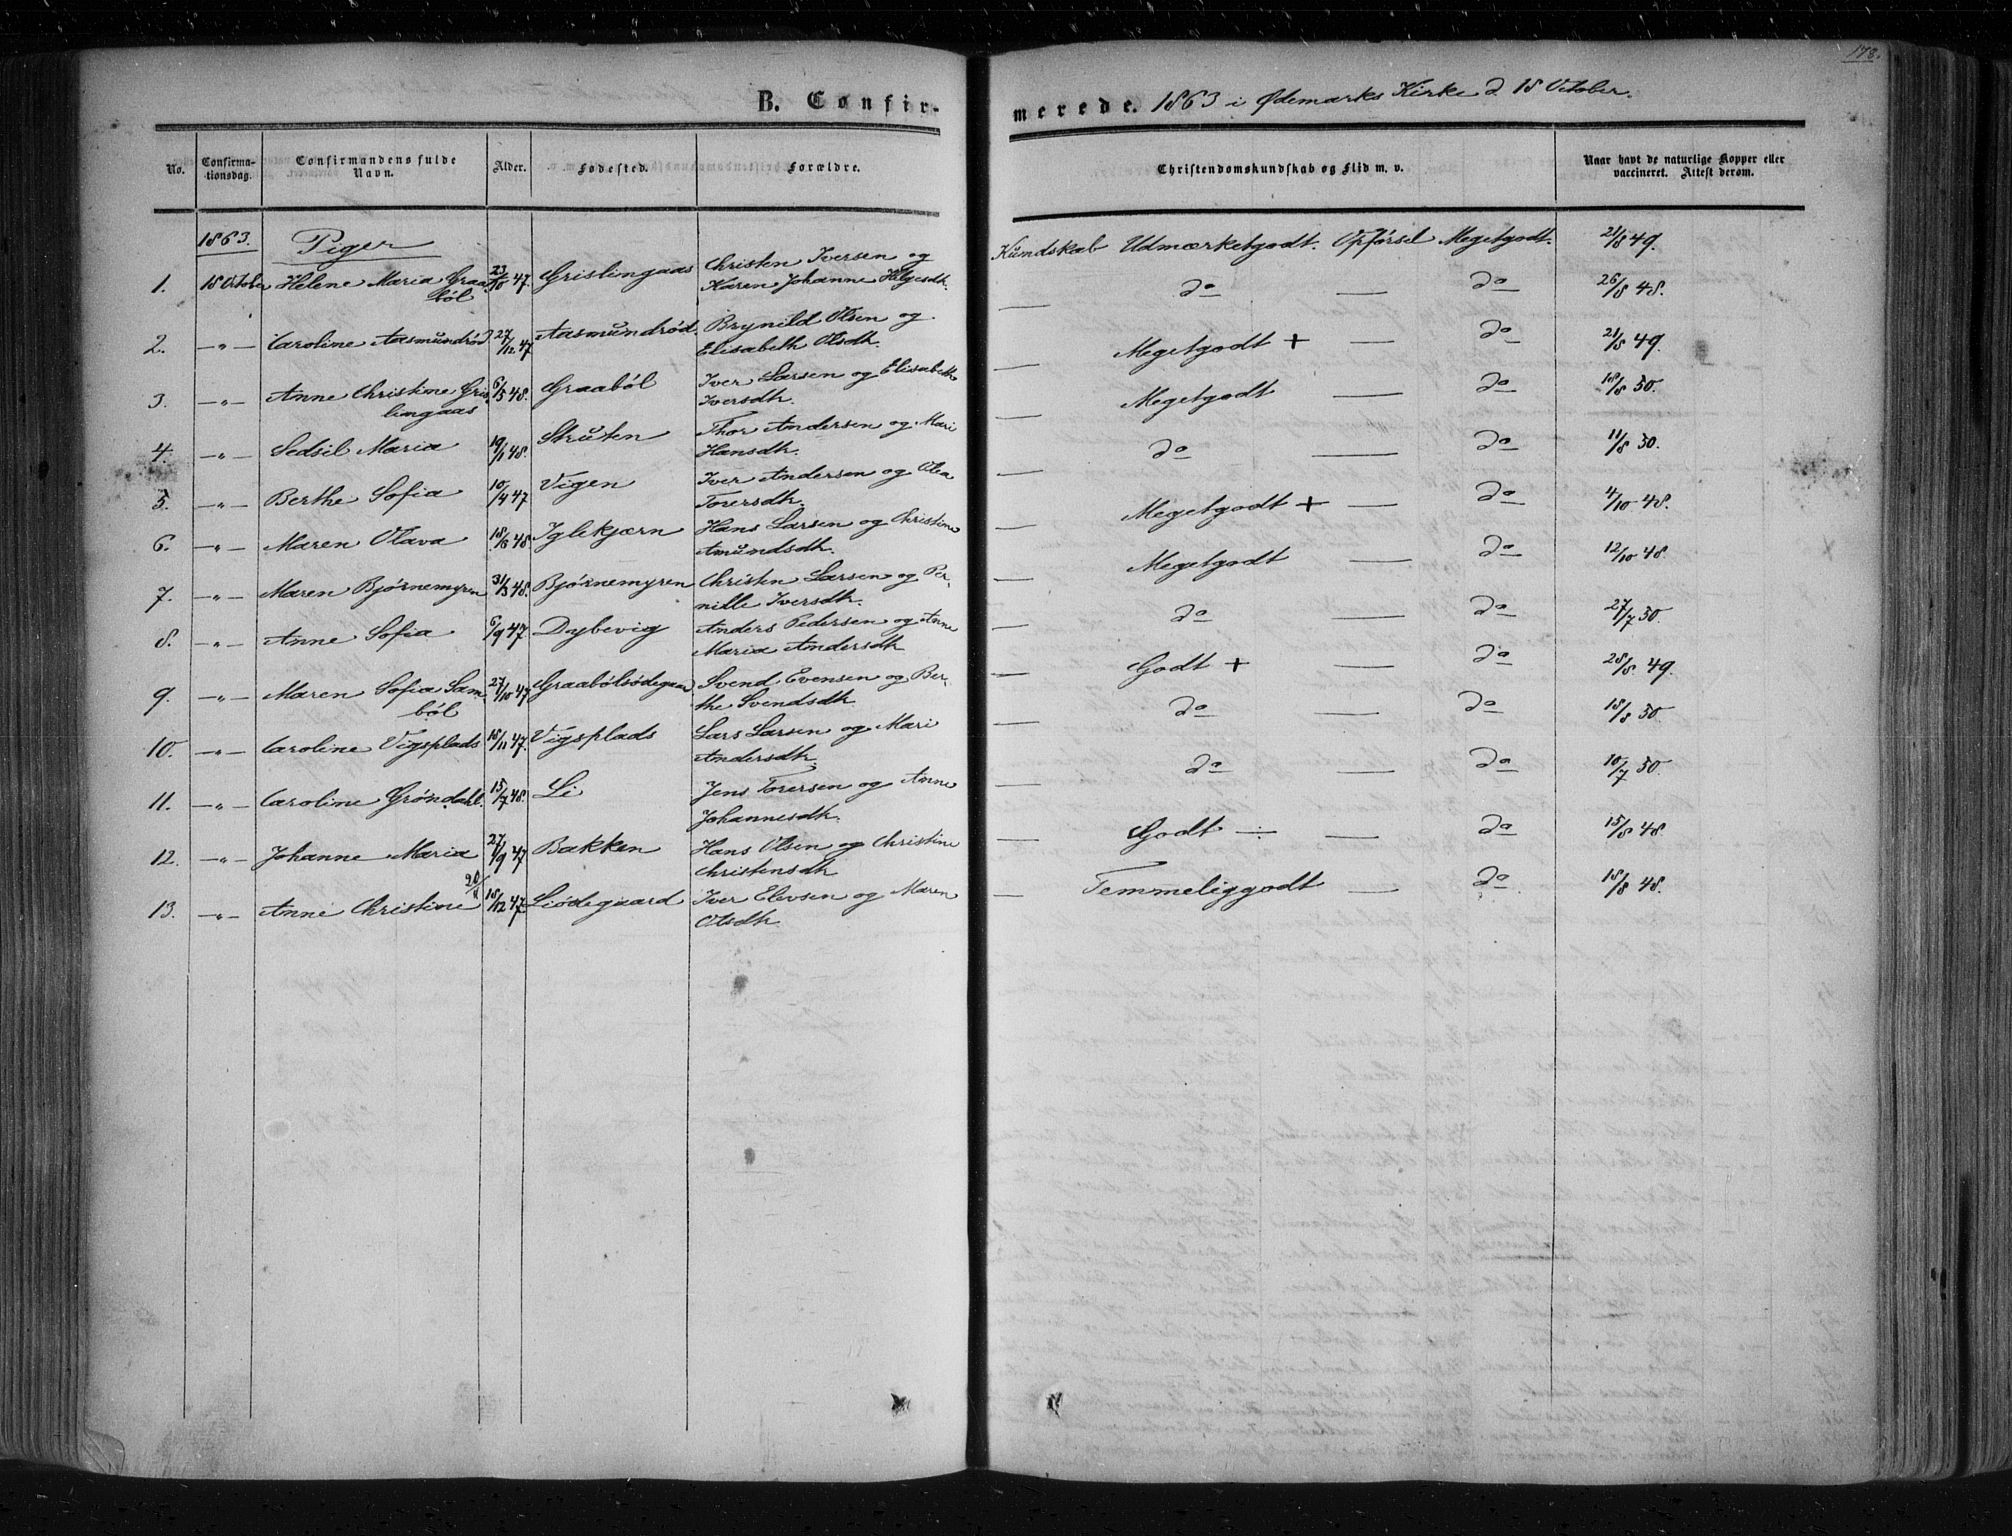 178.
B. Confir-
merede. 1863 i Ødemarks Kirke d 18 October.
No.
Confirma-
tionsdag.
Confirmandens fulde
Navn.
Alder.
Fødested.
Forældre.
Christendomskundskab og Flid m. v.
Naar havt de naturlige Kopper eller
vaccineret. Attest derom.
1863. Piger
1. 18 October Helene Maria Graa- 23/10 47. Grislingaas Christen Iversen og Kundskab Udmærketgodt. Opførsel Megetgodt. 21/8 49.
böl Karen Johanne Helgesdh.
2. —"— Caroline Aasmundröd 27/12 47 Aasmundröd. Brynild Olsen og — do — do 26/8 48.
Elisabeth Olsdh.
3. —"— Anne Christine Gris- 6/5 48. Graaböl Iver Larsen og Elisabeth — Megetgodt + — do 21/8 49.
lingaas Iversdh.
4. —"— Sedsil Maria 19/1 48. Struten Thor Andersen og Mari — Megetgodt — do 18/8 50.
Hansdh.
5. —"— Berthe Sofia 10/4 47 Vigen Iver Andersen og Olea — do — do 11/8 50.
Torersdh.
6. —"— Maren Olava 18/8 48. Iglekjærn Hans Larsen og Christine — Megetgodt + — do 4/10 48.
Amundsdh.
7. —"— Maren Bjørnemyren 31/3 48. Bjørnemyren Christen Larsen og Per- — Megetgodt — do 12/10 48.
nille Iversdh.
8. —"— Anne Sofia 6/9 47 Dybevig Anders Pedersen og Anne — do — do 27/7 50.
Maria Andersdh
9. —"— Maren Sofia Sam- 27/10 47 Graabölsödegaar Svend Evensen og Ber- — Godt + — do 28/8 49.
böl the Svendsdh
10. —"— Caroline Vigsplads 18/11 47. Vigsplads Lars Larsen og Mari — do — do 18/8 50
Andersdh.
11. —"— Caroline Gröndahl. 15/7 48. Li Jens Torersen og Anne — do — do 10/7 50.
Johannesdh.
12. —"— Johanne Maria 27/9 47 Bakken Hans Olsen og Christine — Godt ÷ — do 15/8 48.
Christensdh
13. —"— Anne Christine 18/12 47. Liödegaard Iver Elevsen og Maren — Temmeliggodt — do 18/8 48.
Olsdh.